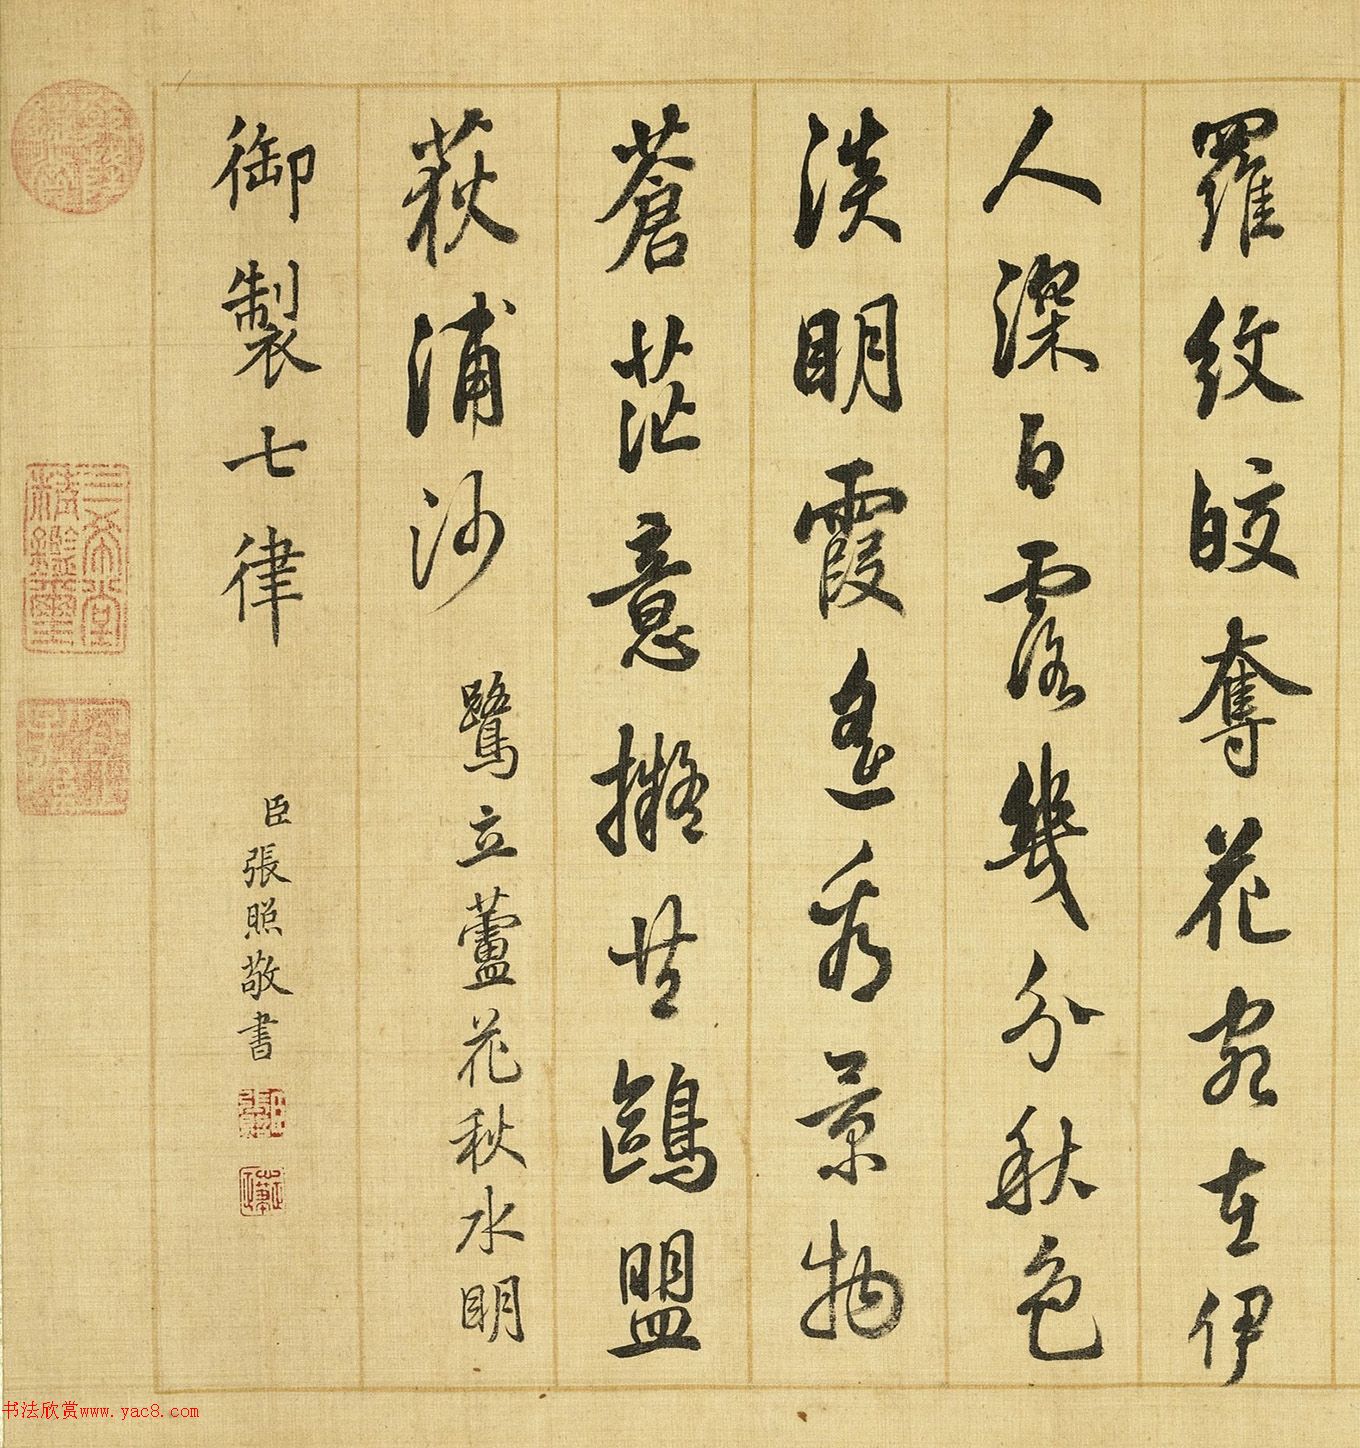 羅紋皎奪花宛在伊
人深白露幾分秋色
淡明霞遙看景物
蒼茫意擬共鷗盟
荻浦沙 鷺立蘆花秋水明
御製七律 臣張照敬書
三希堂精鑑璽
书法欣赏www.yac8.com